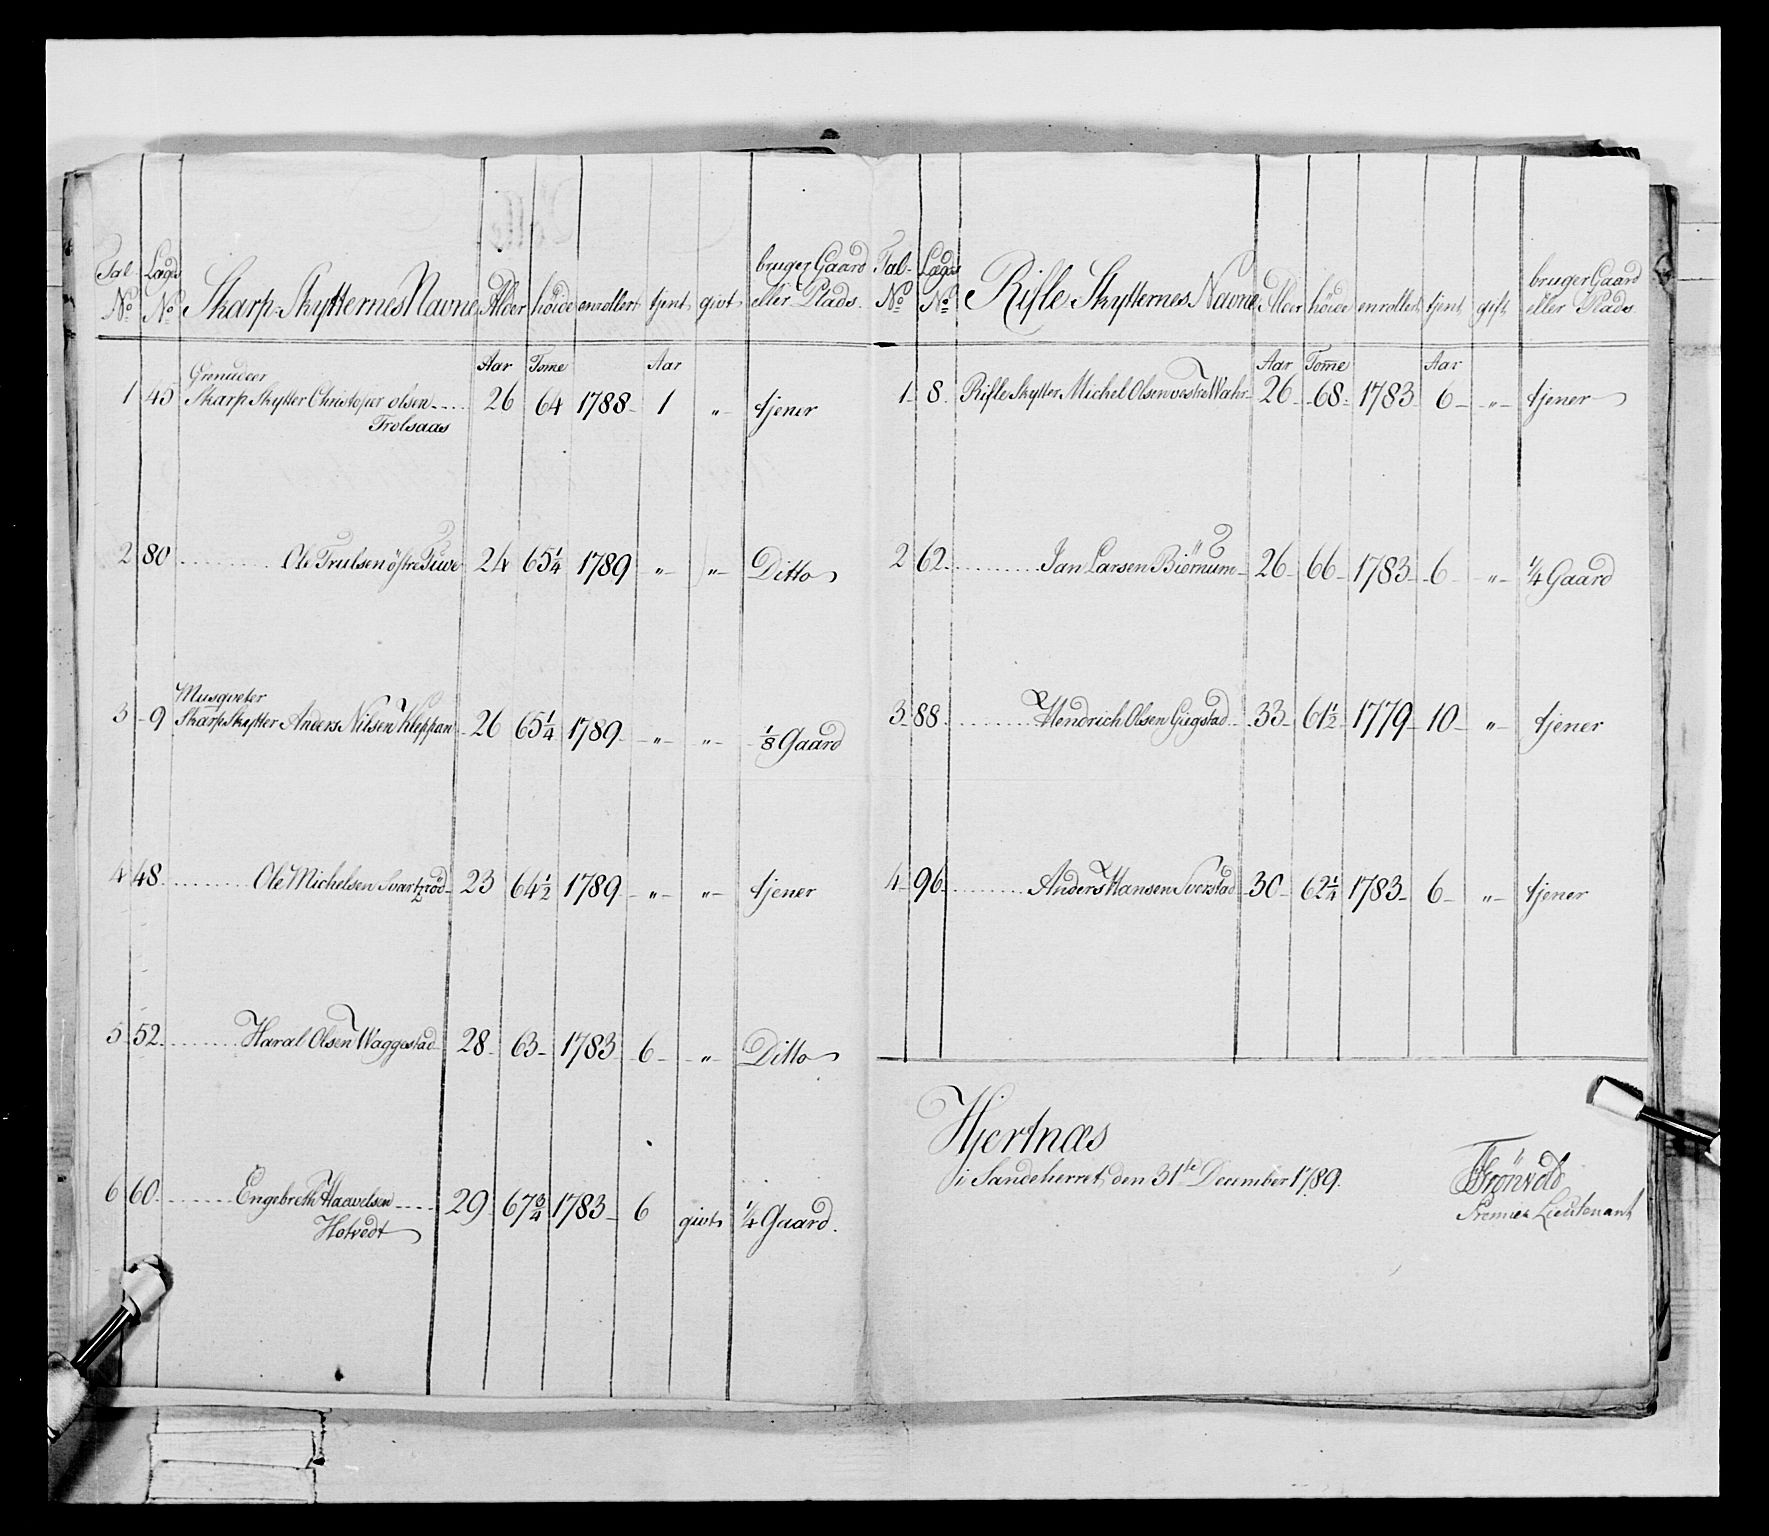 Tal No Lægds No Skarp-Skytternes Navne Alder höide enrollert tjent givt bruger Gaard eller Plads.
Aar Tome Aar
Grenadeer
1 45 Skarp Skytter Christoper olsen 26 64 1788 1 " tjener
Trolsaas
2 80 Ole Trulsen östre Tuve 24 65 1/4 1789 " " Ditto
Musqveter
3 9 Skarp Skytter Anders Nilsen Kleppan 26 65 1/4 1789 " " 1/8 Gaard
4 48 Ole Michelsen Svartzröd 23 64 1/2 1789 " " tjener
5 52 Haral Olsen Waggestad 28 63 1783 6 " Ditto
6 60 Engebreth Haavelsen 29 67 3/4 1783 6 givt 1/4 Gaard.
Hotvedt
Tal No Lægds No Rifle Skytternes Navne Alder höide enrollert tjent gift bruger Gaard eller Plads.
Aar Tome Aar
1 8 Rifle Skytter Michel Olsen vestre Wahr 26 68 1783 6 " tjener
2 62 Jan Larsen Biörnum 26 66 1783 6 " 1/4 Gaard
3 88 Hendrich Olsen Giegstad 33 61 1/2 1779 10 " tjener
4 96 Anders Hansen Sverstad 30 62 1/4 1783 6 " tjener
Hjertnæs
i Sandeherret, den 31te December 1789.
Grönvold
Premier Lieutenant